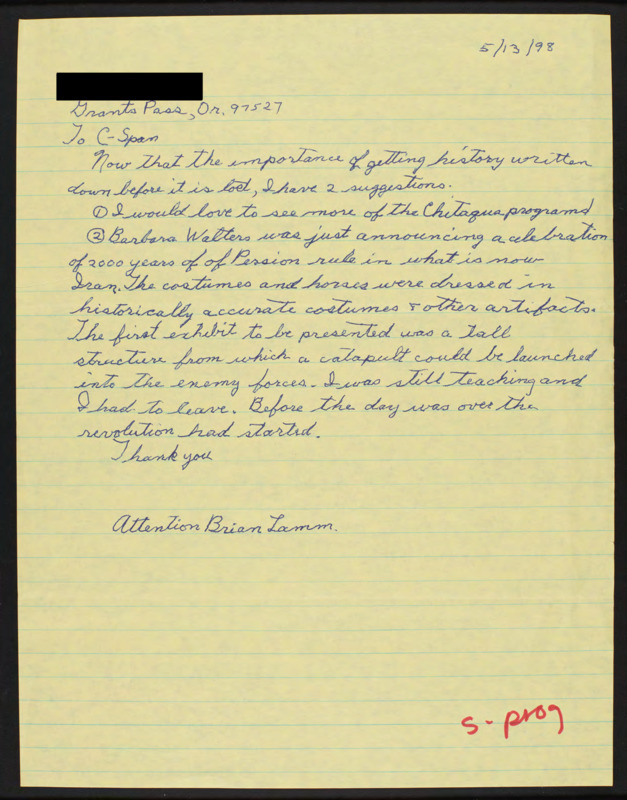 5/13/98
Grants Pass, Or. 97527
To C-Span
Now that the importance of getting history written
down before it is lost, I have 2 suggestions.
① I would love to see more of the Chitaqua programs
② Barbara Walters was just announcing a celebration
of 2000 years of of Persion rule in what is now
Iran. The costumes and horses were dressed in
historically accurate costumes & other artifacts.
The first exhibit to be presented was a tall
structure from which a catapult could be launched
into the enemy forces. I was still teaching and
I had to leave. Before the day was over the
revolution had started.
Thank you
Attention Brian Lamm.
s-prog